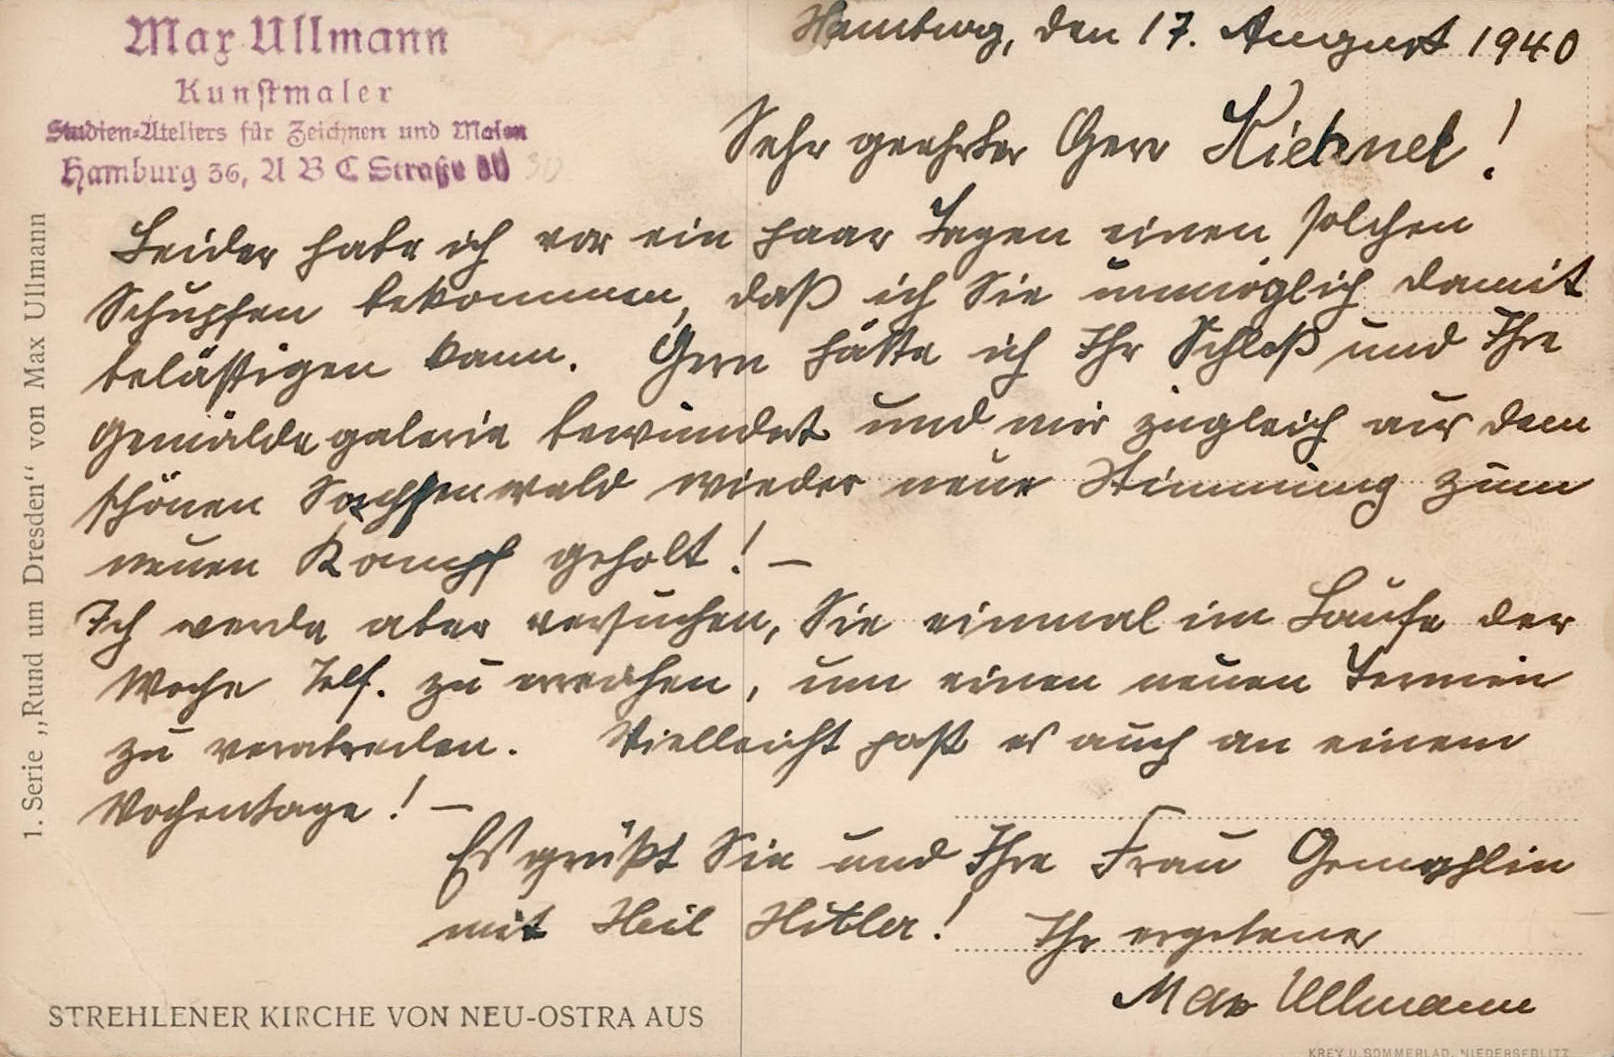 Max Ullmann
Kunstmaler
Studien-Ateliers für Zeichnen und Malen
Hamburg 36, A B C Straße
30
Hamburg, den 17. August 1940
Sehr geehrter Herr Kiehnel!
Leider habe ich vor ein paar Tagen einen solchen
Schupfen bekommen, daß ich Sie unmöglich damit
belästigen kann. Gern hätte ich Ihr Schloß und Ihre
Gemäldegalerie bewundert und mir zugleich aus dem
schönen Sachsenwald wieder neue Stimmung zum
neuen Kampf geholt! –
Ich werde aber versuchen, Sie einmal im Laufe der
Woche Telf. zu erreichen, um einen neuen Termin
zu verabreden. Vielleicht paßt es auch an einem
Wochentage! –
Es grüßt Sie und Ihre Frau Gemahlin
mit Heil Hitler! Ihr ergebener
Max Ullmann
1. Serie „Rund um Dresden“ von Max Ullmann
STREHLENER KIRCHE VON NEU-OSTRA AUS
KREY U. SOMMERLAD, NIEDERSEDLITZ